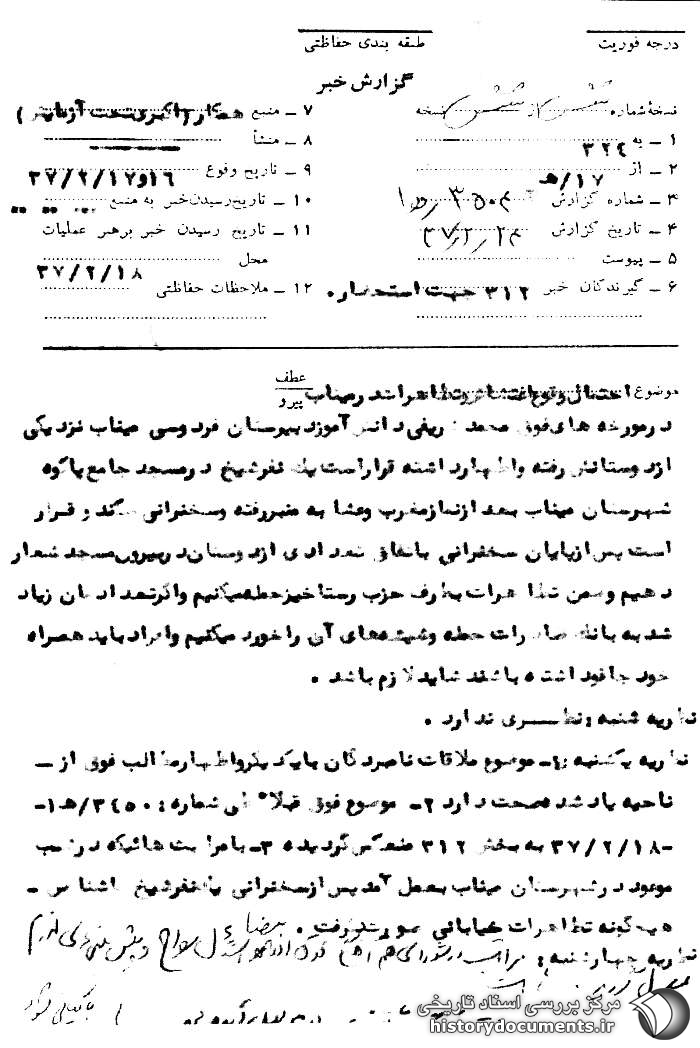 درجه فوریت
طبقه بندی حفاظتی
گزارش خبر
نسخهٔ شماره ششم از ششم نسخه
۱ ـ به ۳۲۴
۲ ـ از ۱۷/هـ
۳ ـ شماره گزارش
۴ ـ تاریخ گزارش ۳۷/۲/۲۳
۵ ـ پیوست
۶ ـ گیرندگان خبر ۳۱۲ جهت استحضار.
۷ ـ منبع همکار (اکبری تحت آزمایش)
۸ ـ منشأ
۹ ـ تاریخ وقوع ۱۶و۳۷/۲/۱۷
۱۰ ـ تاریخ رسیدن خبر به منبع
۱۱ ـ تاریخ رسیدن خبر برهبر عملیات
محل ۳۷/۲/۱۸
۱۲ ـ ملاحظات حفاظتی
عطف
پیرو
موضوع احتمال وقوع اغتشاش و تظاهرات در میناب
در مورخه های فوق محمد شریفی دانش آموز دبیرستان فردوسی میناب نزدیکی
از دوستانش رفته واظهار داشته قرار است یک نفر شیخ در مسجد جامع پاکوه
شهرستان میناب بعد از نماز مغرب وعشا به منبر رفته وسخنرانی میکند و قرار
است پس از پایان سخنرانی باتفاق تعدادی از دوستان در بیرون مسجد شعار
دهیم وضمن تظاهرات بطرف حزب رستاخیز حمله میکنیم واگر تعدادمان زیاد
شد به بانک صادرات حمله وشیشه های آن را خورد میکنیم وافراد باید همراه
خود چاقو داشته باشند شاید لازم باشد .
نظریه شنبه : نظری ندارد .
نظریه یکشنبه : ۱ـ موضوع ملاقات نامبردگان با یکدیگر واظهار مطالب فوق از ـ
ناحیه یاد شده صحت دارد ۲ـ موضوع فوق قبلا طی شماره : ۳۴۵۰/هـ ۱ـ
ـ ۳۷/۲/۱۸ به بخش ۳۱۲ منعکس گردیده ۳ـ با مراقبت هائیکه در شب
موعود در شهرستان میناب بعمل آمد پس از سخنرانی یک نفر شیخ ناشناس ـ
هیچگونه تظاهرات خیابانی صورت نگرفت .
نظریه چهارشنبه :
مرکز بررسی اسناد تاریخی
historydocuments.ir